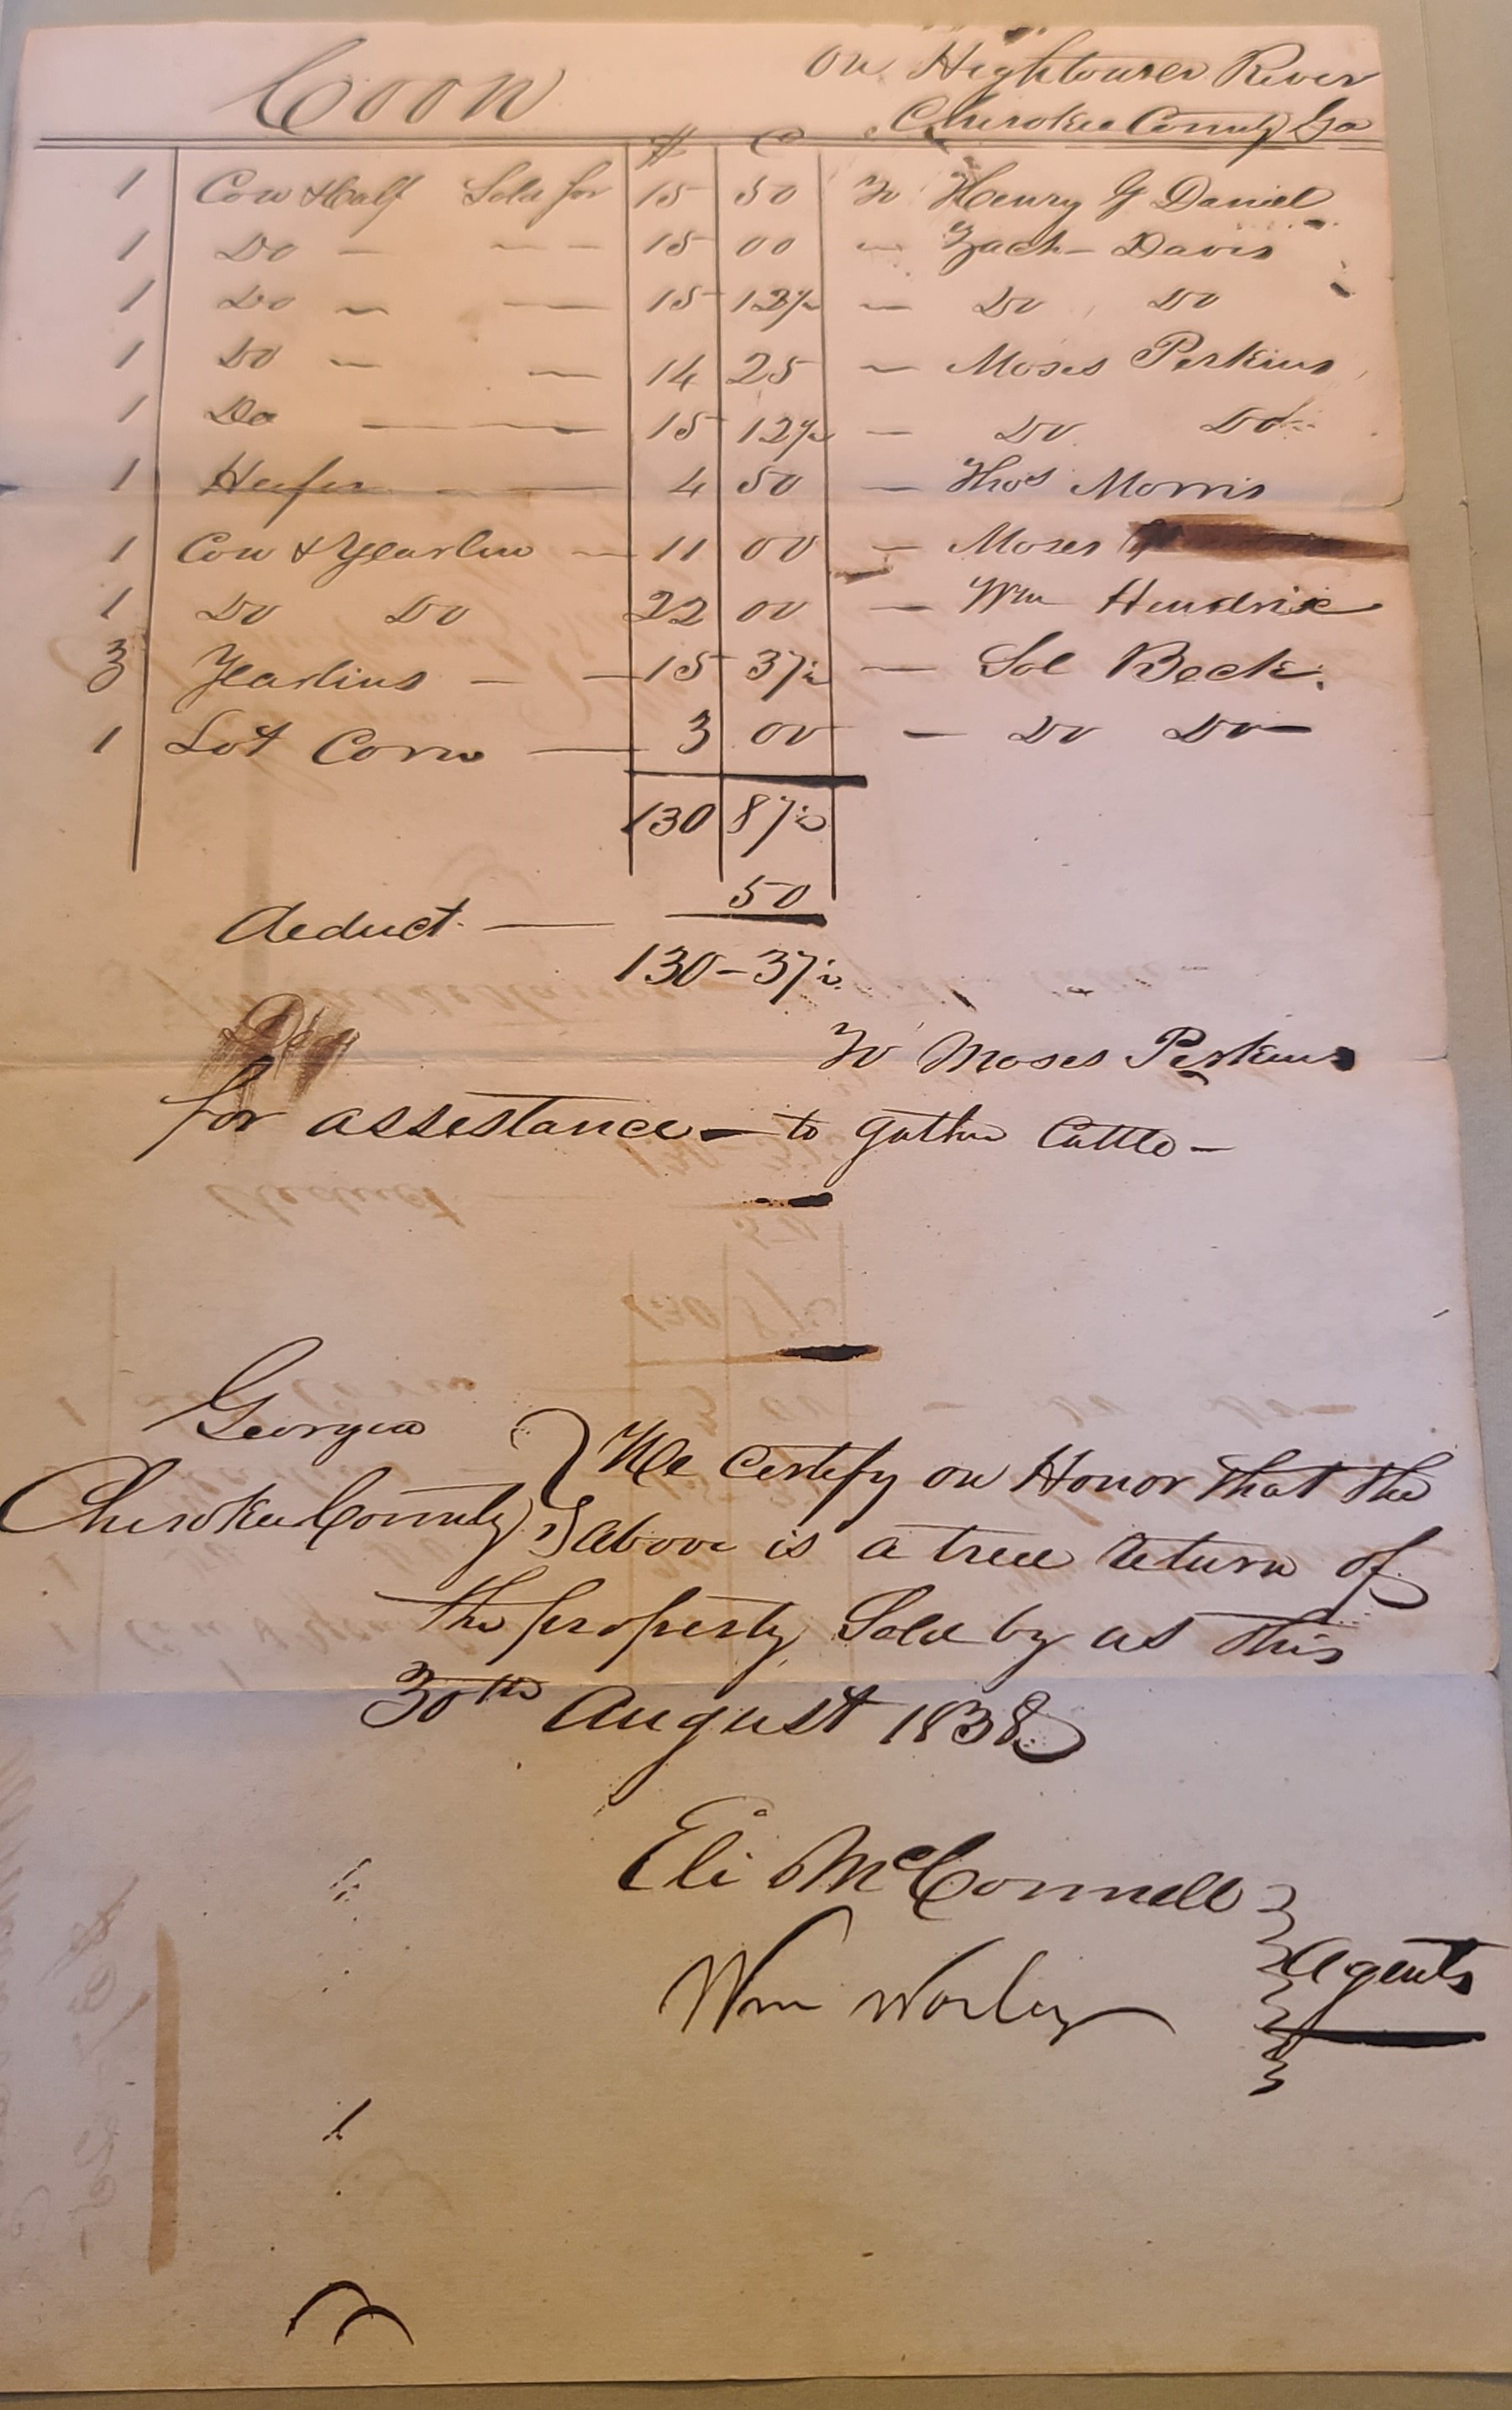 Coon on Hightower River
Cherokee County Ga
$ C
1 Cow & Calf Sold for 15 50 To Henry G Daniel
1 Do — — — 15 00 — Zach– Davis
1 Do — — 15 12½ — Do Do
1 Do — — 14 25 — Moses Perkins
1 Do — — 15 12½ — Do Do
1 Heifer — — 4 50 — Thos Morris
1 Cow & Yearlin — 11 00 — Moses
1 Do Do 22 00 — Wm Hendrix
3 Yearlins — — 15 37½ — Sol Beck.
1 Lot Corn — 3 00 — Do Do —
130 87½
50
deduct — 130–37½
To Moses Perkins
for assestance — to gather Cattle —
Georgia
Cherokee County } We Certify on Honor that the
above is a true return of
the property Sold by us this
30th August 1838
Eli McConnell
Wm Worley } Agents